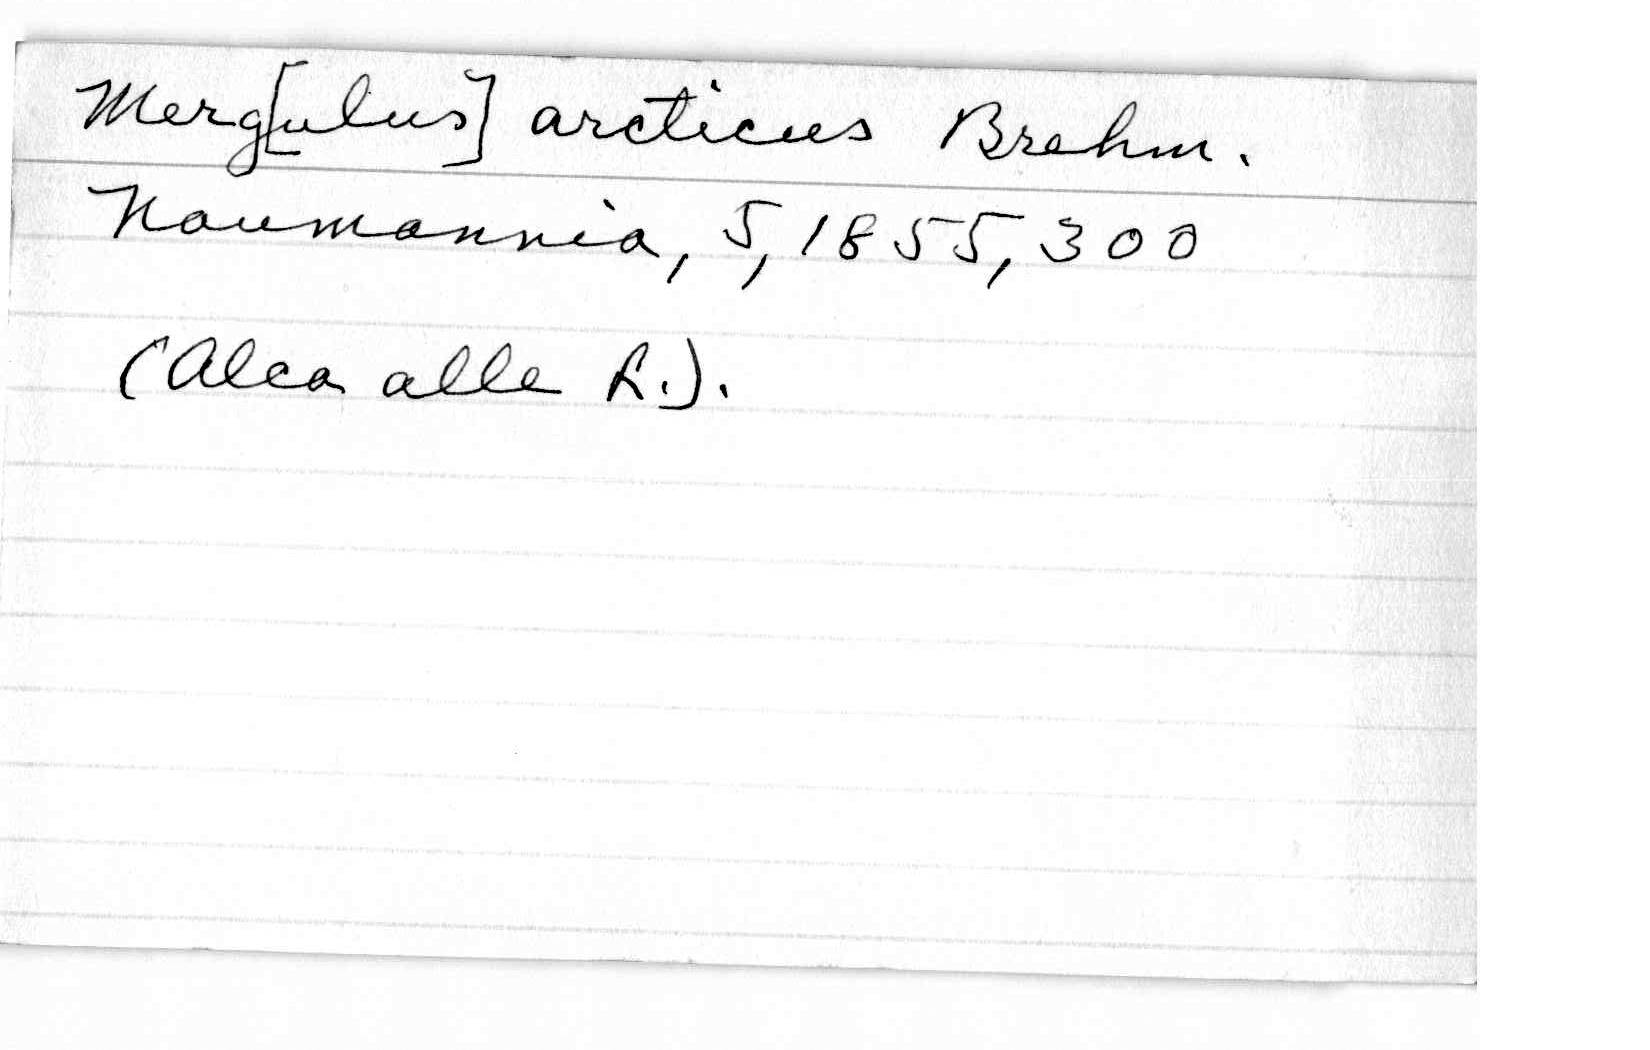 Merg[ulus] arcticus Brehm.
Naumannia, 5, 1855, 300
(Alca alle L.).